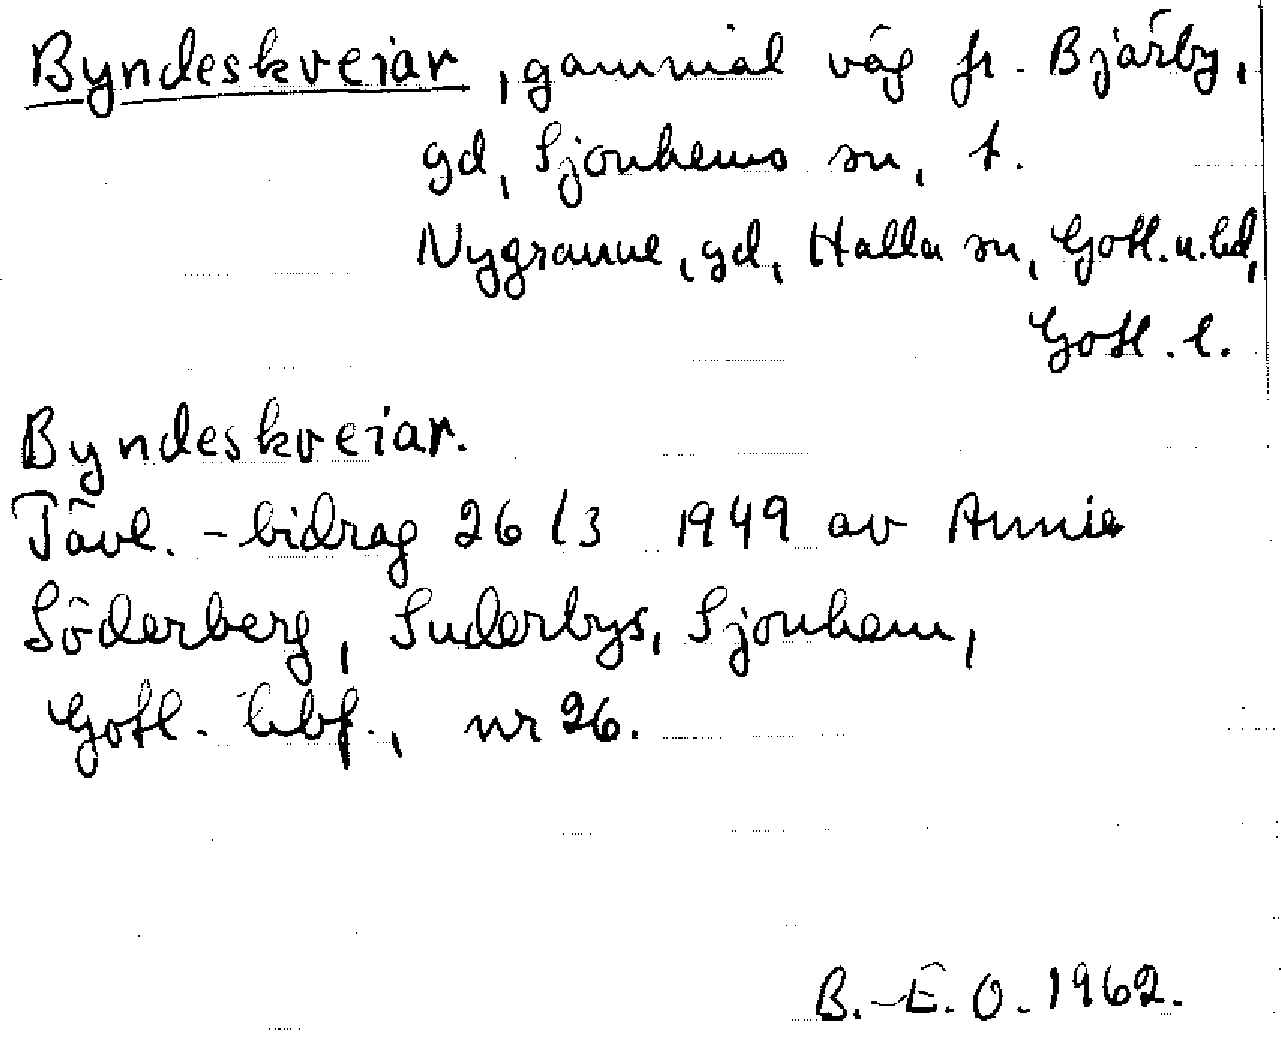 Byndeskveiar, gammal väg fr. Bjärby,
gd, Sjonhems sn, t.
Nygranne, gd, Halla sn, Gotl. n. hd,
Gotl. l.
Byndeskveiar.
Tävl.-bidrag 26/3 1949 av Annie
Söderberg, Suderbys, Sjonhem,
Gotl. hbf., nr 26.
B.-E. O. 1962.